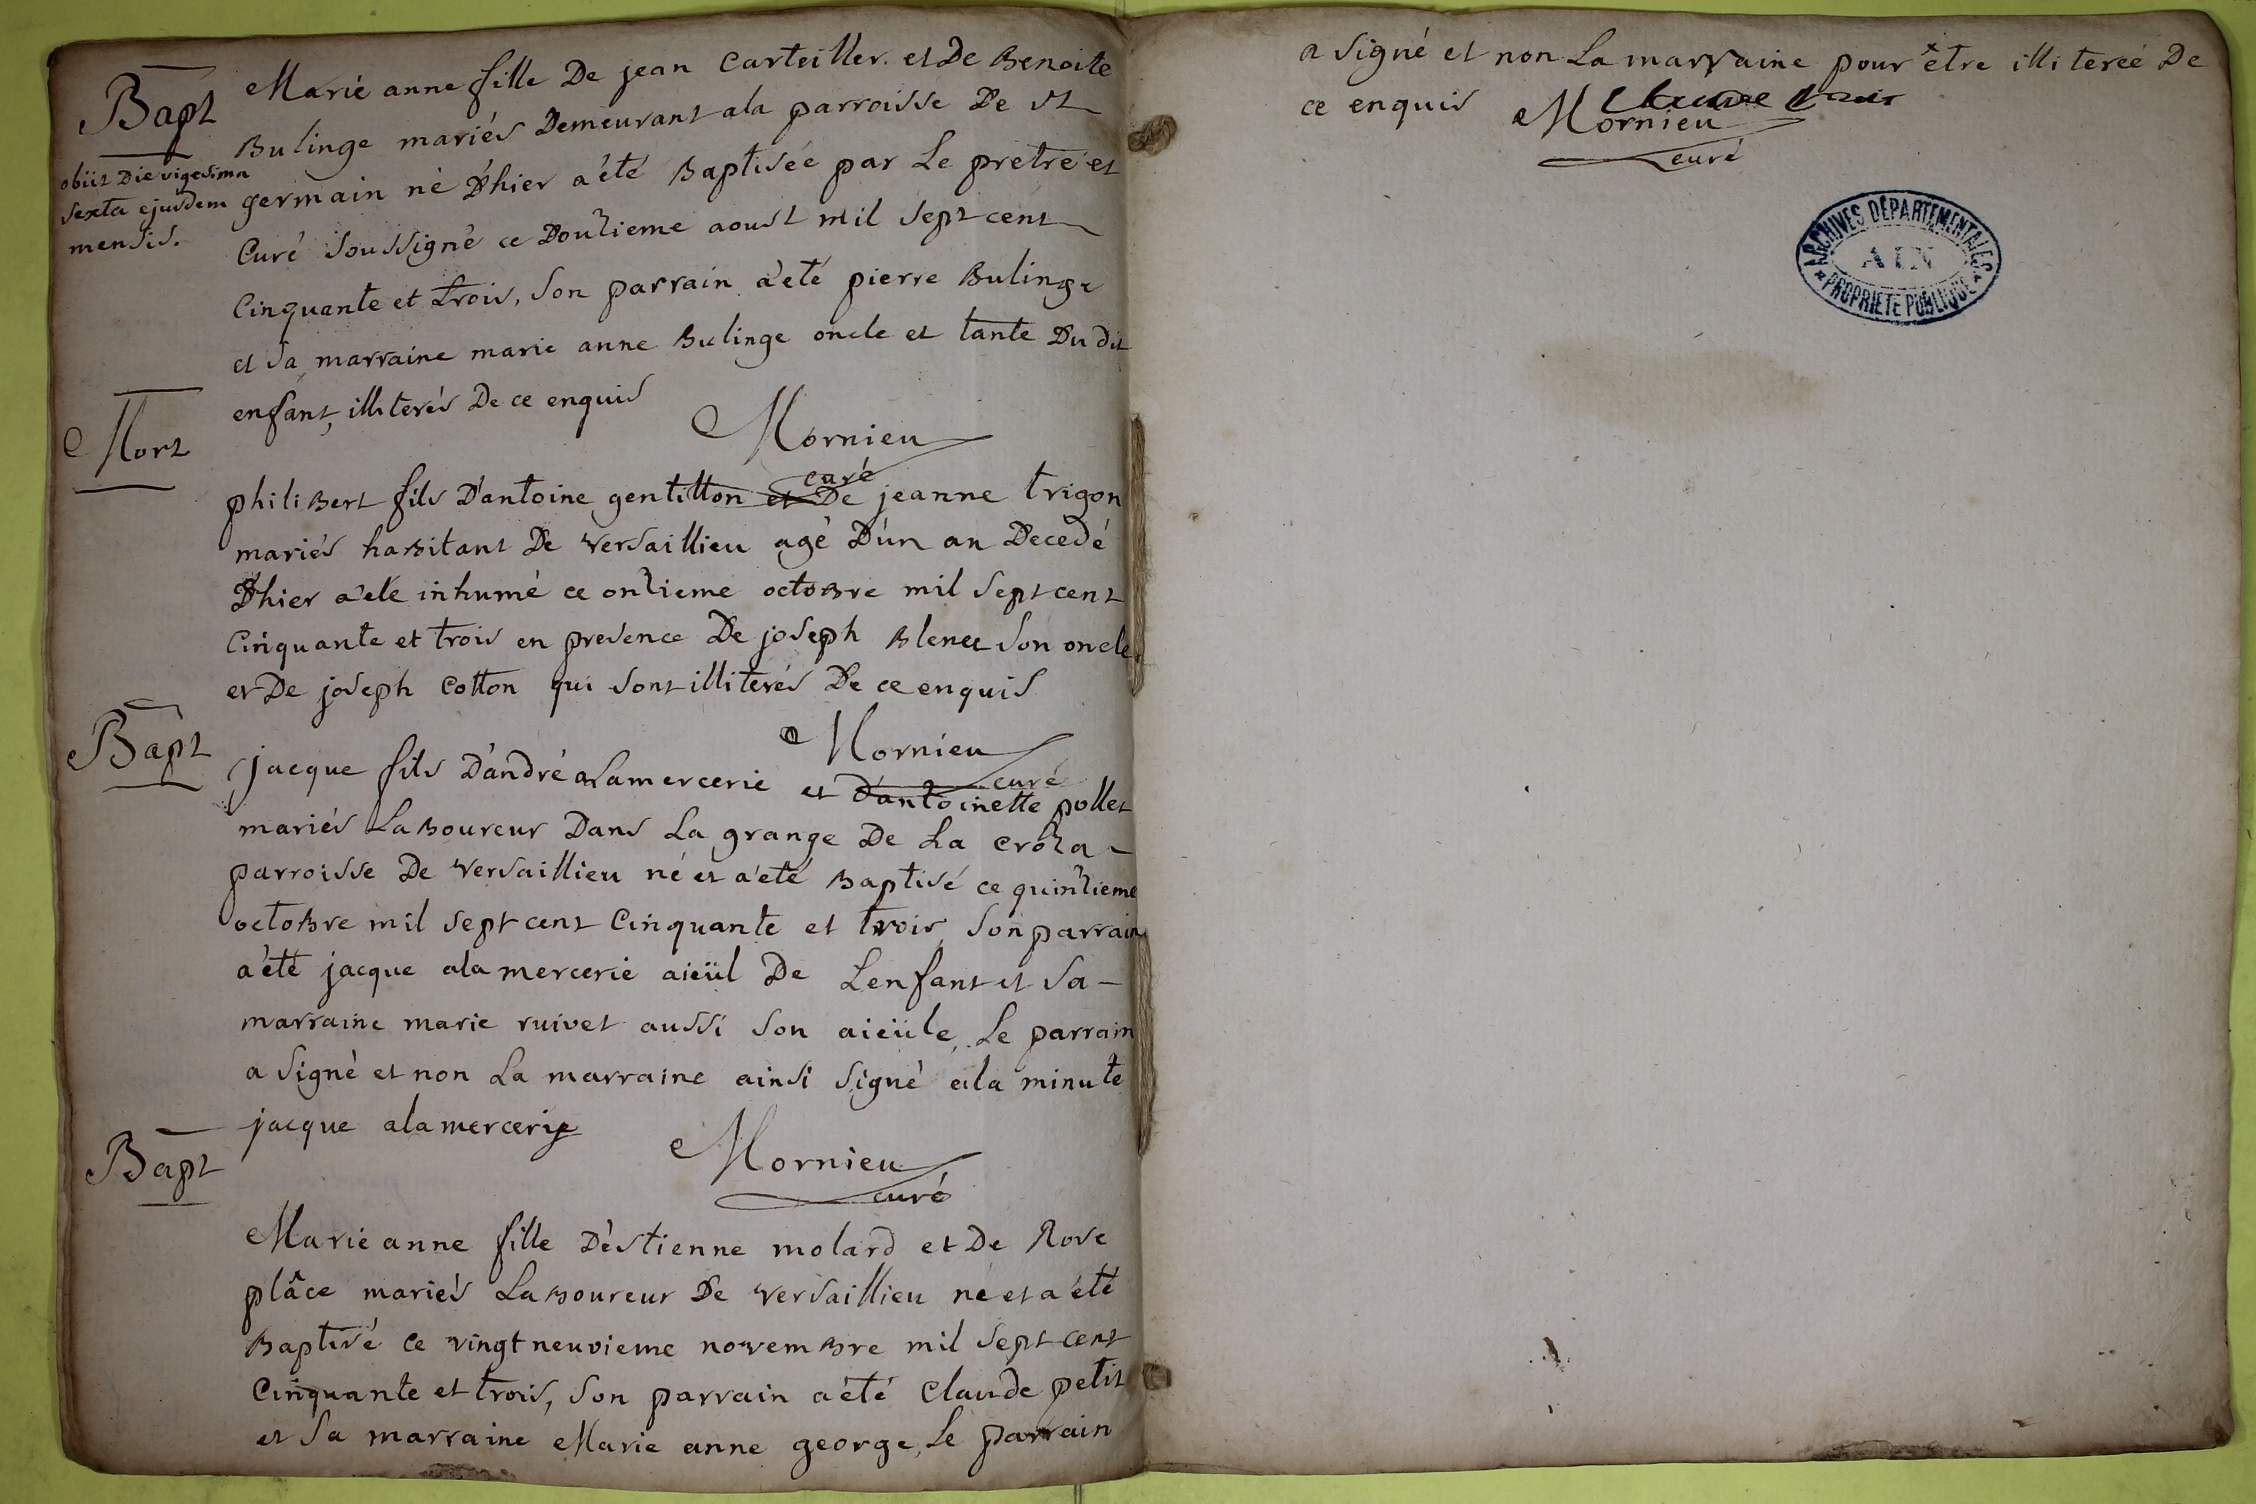 Bapt
obiit Die vigesima
sexta ejusdem
mensis.
Marie anne fille De jean Carteiller et De Benoite
Bulinge mariés Demeurant ala parroisse De st
germain né D'hier a été Baptisée par Le pretre et
Curé soussigné ce Douzieme aoust mil sept cent
Cinquante et trois, son parrain a été pierre Bulinge
et sa marraine marie anne Bulinge oncle et tante Du dit
enfant, illiterés De ce enquis
Mornieu
curé
Mort
philibert fils D'antoine gentillon et De jeanne trigon
mariés habitant De versaillieu agé D'un an Decedé
D'hier a eté inhumé ce onzieme octobre mil sept cent
Cinquante et trois en presence De joseph Blenet son oncle
et De joseph Cotton qui sont illiterés De ce enquis
Mornieu
curé
Bapt
jacque fils D'andré alamercerie et D'antoinette pollet
mariés Laboureur Dans La grange De La croza
parroisse De versaillieu né et a été Baptisé ce quinzieme
octobre mil sept cent Cinquante et trois, son parrain
a été jacque ala mercerie aieül De Lenfant et sa
marraine marie ruivet aussi son aieüle, Le parrain
a signé et non La marraine ainsi signé ala minute
jacque alamercerie
Mornieu
curé
Bapt
Marie anne fille D'estienne molard et De Rose
plâce mariés Laboureur De versaillieu né et a été
Baptisé ce vingt neuvieme novembre mil sept cent
Cinquante et trois, son parrain a été Claude petit
et sa marraine Marie anne george, Le parrain
a signé et non La marraine pour être illiterée De
ce enquis
Claude
Mornieu
curé
ARCHIVES DÉPARTEMENTALES
AIN
PROPRIÉTÉ PUBLIQUE